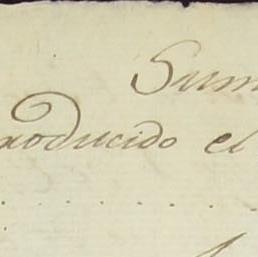 Sum
roducido el